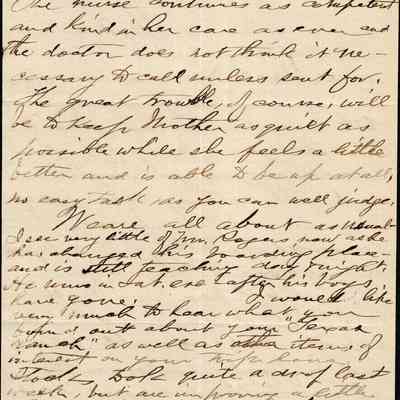 The nurse continues as competent
and kind in her care as ever and
the doctor does not think it ne-
cessary to call unless sent for.
The great trouble, of course, will
be to keep Mother as quiet as
possible while she feels a little
better and is able to be up at all,
no easy task as you can well judge.
We are all about as usual-
I see very little of Mr. now as he
has changed his boarding place-
and is still teaching day & night.
He was in Sat. eve after his boys
have gone. I would like
very much to hear what you
found out about your "Texas
Ranch" as well as other items of
interest on your trip home.
Stocks took quite a drop last
week, but are improving a little